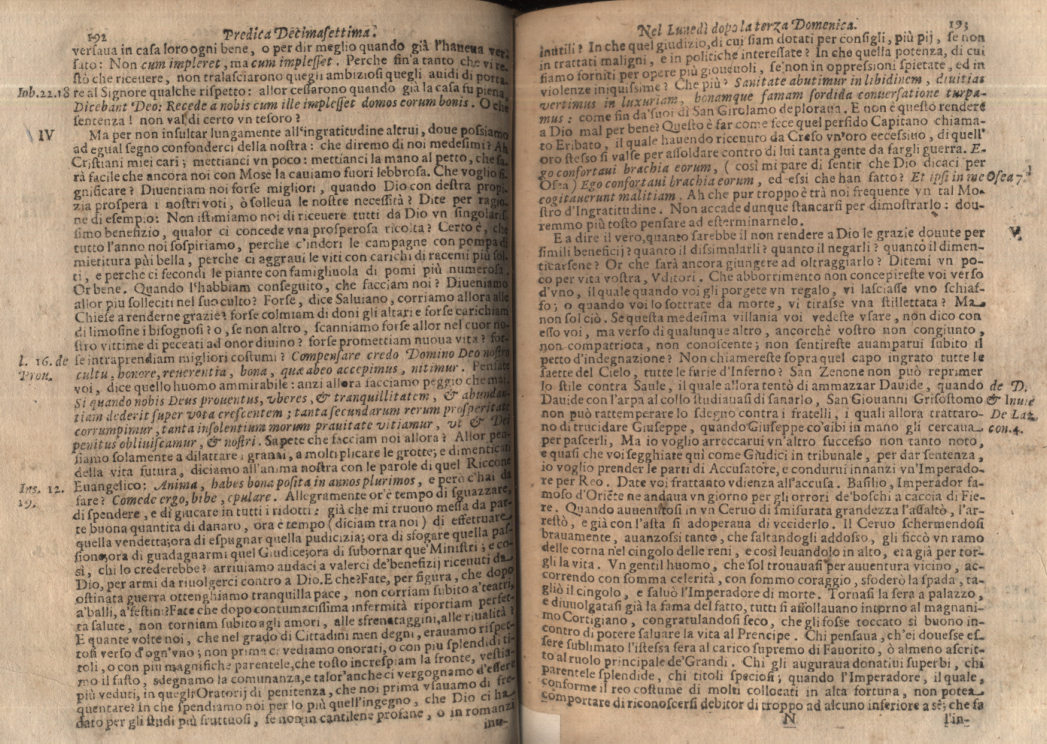 192 Predica Decimasettima.
versaua in casa loro ogni bene, o per dir meglio quando già l'haueua ver-
sato: Non cum impleret, ma cum implesset. Perche fin'a tanto che vi re-
stò che riceuere, non tralasciarono quegli ambiziosi quegli auidi di porta-
Iob.22.18 re al Signore qualche rispetto: allor cessarono quando già la casa fu piena,
Dicebant Deo: Recede a nobis cum ille implesset domos eorum bonis. O che
sentenza! non val di certo vn tesoro?
IV Ma per non insultar lungamente all'ingratitudine altrui, doue possiamo
ad egual segno confonderci della nostra: che diremo di noi medesimi? Ah
Cristiani miei cari; mettianci vn poco: mettianci la mano al petto, che sa-
rà facile che ancora noi con Mosè la cauiamo fuori lebbrosa. Che voglio si-
gnificare? Diuentiam noi forse migliori, quando Dio con destra propi-
zia prospera i nostri voti, ò solleua le nostre necessità? Dite per ragio-
ne di esempio: Non istimiamo noi di riceuere tutti da Dio vn singolaris-
simo benefizio, qualor ci concede vna prosperosa ricolta? Certo è, che
tutto l'anno noi sospiriamo, perche c'indori le campagne con pompa di
mietitura più bella, perche ci aggraui le viti con carichi di racemi più fol-
ti, e perche ci fecondi le piante con famigliuola di pomi più numerosa.
Or bene. Quando l'habbiam conseguito, che facciam noi? Diueniamo
allor più solleciti nel suo culto? Forse, dice Saluiano, corriamo allora alle
Chiese a renderne grazie? forse colmiam di doni gli altari? e forse carichiam
di limosine i bisognosi? o, se non altro, scanniamo forse allor nel cuor no-
stro vittime di peccati ad onor diuino? forse promettiam nuoua vita? for-
l. 16. de se intraprendiam migliori costumi? Compensare credo Domino Deo nostro
Prou. cultu, honore, reuerentia, bona, quæ ab eo accepimus, nitimur. Pensate
voi, dice quello huomo ammirabile: anzi allora facciamo peggio che mai.
Si quando nobis Deus prouentus, vberes, & tranquillitatem, & abundan-
tiam dederit super vota crescentem; tanta secundarum rerum prosperitate
corrumpimur, tanta insolentium morum prauitate vitiamur, vt & Dei
penitus obliuiscamur, & nostri. Sapete che facciam noi allora? Allor pen-
siamo solamente a dilattare i granai, a moltiplicare le grotte; e dimenticati
della vita futura, diciamo all'anima nostra con le parole di quel Riccone
Luc. 12. Euangelico: Anima, habes bona posita in annos plurimos, e però c'hai da
19. fare? Comede ergo, bibe, epulare. Allegramente or'è tempo di sguazzare,
di spendere, e di giucare in tutti i ridotti: già che mi truouo messa da par-
te buona quantità di danaro, ora è tempo (diciam tra noi) di effettuare
quella vendetta; ora di espugnar quella pudicizia; ora di sfogare quella pas-
sione; ora di guadagnarmi quel Giudice; ora di subornar que' Ministri; e co-
sì, chi lo crederebbe? arriuiamo audaci a valerci de' benefizij riceuuti da
Dio, per armi da riuolgerci contro a Dio. E che? Fate, per figura, che dopo
ostinata guerra ottenghiamo tranquilla pace, non corriam subito a' teatri,
a' balli, a' festin:? Fate che dopo contumacissima infermità riportiam perfet-
ta salute, non torniam subito agli amori, alle sfrenataggini, alle riualità?
E quante volte noi, che nel grado di Cittadini men degni, erauamo rispet-
tosi verso d'ogn'vno; non prima ci vediamo onorati, o con più splendidi ti-
toli, o con più magnifiche parentele, che tosto increspiam la fronte, vestia-
mo il fasto, sdegnamo la comunanza, e talor'anche ci vergognamo d'essere
più veduti, in quegli Oratorij di penitenza, che noi prima vsauamo di fre-
quentare? In che spendiamo noi per lo più quell'ingegno, che Dio ci ha
dato per gli studi più fruttuosi, se non in cantilene profane, o in romanzi
inu-
Nel Lunedì dopo la terza Domenica. 193
inutili? In che quel giudizio, di cui siam dotati per consigli, più pij, se non
in trattati maligni, e in politiche interessate? In che quella potenza, di cui
siamo forniti per opere più gioueuoli, se non in oppressioni spietate, ed in
violenze iniquissime? Che più? Sanitate abutimur in libidinem, diuitias
vertimus in luxuriam, bonamque famam sordida conuersatione turpa-
mus: come fin da' suoi dì San Girolamo deploraua. E non è questo rendere
a Dio mal per bene? Questo è far come fece quel perfido Capitano chiama-
to Eribato, il quale hauendo riceuuto da Creso vn'oro eccessiuo, di quell'
oro stesso si valse per assoldare contro di lui tanta gente da fargli guerra. E-
go confortaui brachia eorum, (così mi pare di sentir che Dio dica per
Osea) Ego confortaui brachia eorum, ed essi che han fatto? Et ipsi in me Osea 7.
cogitauerunt malitiam. Ah che pur troppo è trà noi frequente vn tal Mo-
stro d'Ingratitudine. Non accade dunque stancarsi per dimostrarlo: dou-
remmo più tosto pensare ad esterminarnelo.
E a dire il vero, quanto sarebbe il non rendere a Dio le grazie douute per V.
simili benefici? quanto il dissimularli? quanto il negarli? quanto il dimen-
ticarsene? Or che sarà ancora giungere ad oltraggiarlo? Ditemi vn po-
co per vita vostra, Vditori. Che abborrimento non concepireste voi verso
d'vno, il quale quando voi gli porgete vn regalo, vi lasciasse vno schiaf-
fo; o quando voi lo sottrate da morte, vi tirasse vna stillettata? Ma
non sol ciò. Se questa medesima villania voi vedeste vsare, non dico con
esso voi, ma verso di qualunque altro, ancorchè vostro non congiunto,
non compatriota, non conoscente; non sentireste auamparui subito il
petto d'indegnazione? Non chiamereste sopra quel capo ingrato tutte le
saette del Cielo, tutte le furie d'Inferno? San Zenone non può reprimer
lo stile contra Saule, il quale allora tentò di ammazzar Dauide, quando de D.
Dauide con l'arpa al collo studiauasi di sanarlo, San Giouanni Grisostomo & Inuid
non può rattemperare lo sdegno contra i fratelli, i quali allora trattaro- De Laz.
no di trucidare Giuseppe, quando Giuseppe co' cibi in mano gli cercaua con.4.
per pascerli, Ma io voglio arrecarui vn'altro successo non tanto noto,
e quasi che voi segghiate qui come Giudici in tribunale, per dar sentenza,
io voglio prender le parti di Accusatore, e condurui innanzi vn'Imperado-
re per Reo. Date voi frattanto vdienza all'accusa. Basilio, Imperador fa-
moso d'Oriēte ne andaua vn giorno per gli orrori de' boschi a caccia di Fie-
re. Quando auuentosi in vn Ceruo di smisurata grandezza l'assaltò, l'ar-
restò, e già con l'asta si adoperaua di vcciderlo. Il Ceruo schermendosi
brauamente, auanzossi tanto, che saltandogli addosso, gli ficcò vn ramo
delle corna nel cingolo delle reni, e così leuandolo in alto, era già per tor-
gli la vita. Vn gentil huomo, che sol trouauasi per auuentura vicino, ac-
correndo con somma celerità, con sommo coraggio, sfoderò la spada, ta-
gliò il cingolo, e saluò l'Imperadore di morte. Tornasi la sera a palazzo,
e diuulgatasi già la fama del fatto, tutti si affollauano intorno al magnani-
mo Cortigiano, congratulandosi seco, che gli fosse toccato si buono in-
contro di potere saluare la vita al Prencipe. Chi pensaua, ch'ei douesse es-
sere sublimato l'istessa sera al carico supremo di Fauorito, ò almeno ascrit-
to al ruolo principale de' Grandi. Chi gli auguraua donatiui superbi, chi
parentele splendide, chi titoli speciosi; quando l'Imperadore, il quale,
conforme il reo costume di molti collocati in alta fortuna, non potea
comportare di riconoscersi debitor di troppo ad alcuno inferiore a sè; che fa
N l'in-